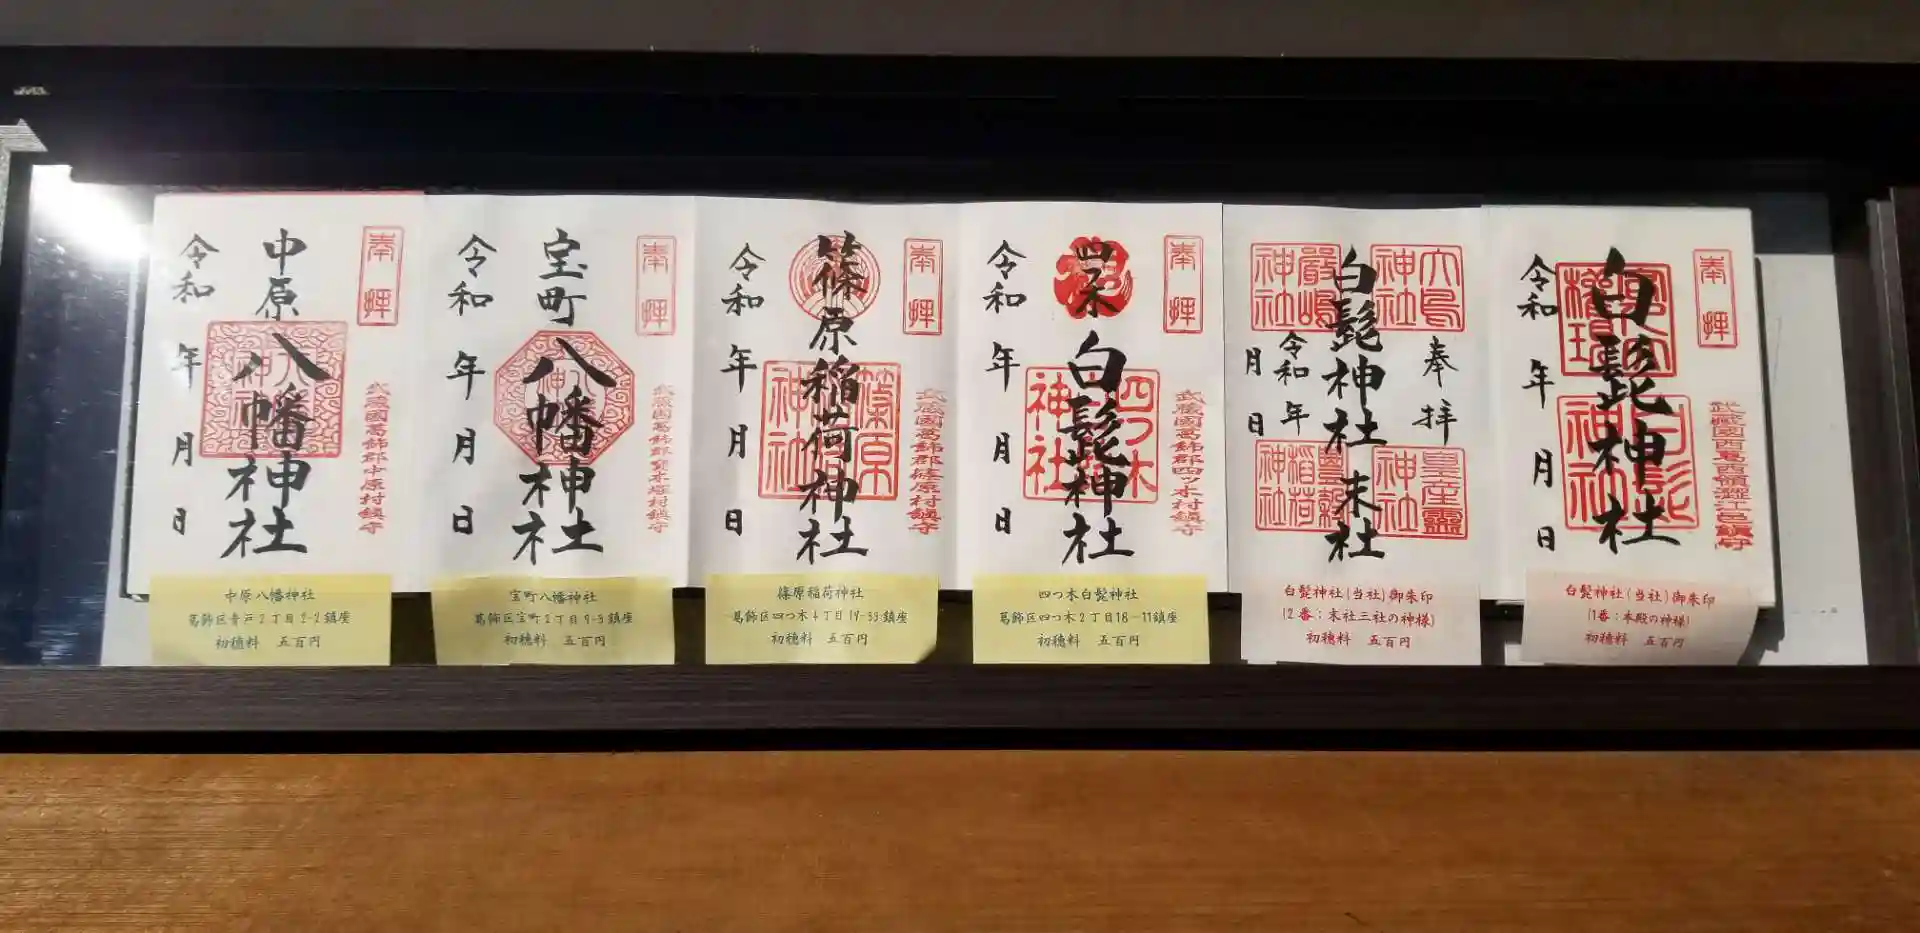 奉拝
白髭神社
白髭神社
令和 年 月 日
武蔵國西葛西領澀江邑鎮守
白髭神社(当社)御朱印
(1番:本殿の神様)
初穂料 五百円
奉拝
大鳥神社
皇産霊神社
白髭神社 末社
嚴嶋神社
豊穀稲荷神社
令和 年
月 日
白髭神社(当社)御朱印
(2番:末社三社の神様)
初穂料 五百円
奉拝
四つ木
白髭神社
四つ木白髭神社
令和 年 月 日
武蔵國葛飾郡四ッ木村鎮守
四つ木白髭神社
葛飾区四つ木2丁目18-11鎮座
初穂料 五百円
奉拝
篠原稲荷神社
篠原稲荷神社
令和 年 月 日
武蔵國葛飾郡篠原村鎮守
篠原稲荷神社
葛飾区四つ木4丁目19-33鎮座
初穂料 五百円
奉拝
宝町
八幡神社
令和 年 月 日
武蔵國葛飾郡寳木塚村鎮守
宝町八幡神社
葛飾区宝町2丁目9-3鎮座
初穂料 五百円
奉拝
中原
八幡神社
令和 年 月 日
武蔵國葛飾郡中原村鎮守
中原八幡神社
葛飾区青戸2丁目2-2鎮座
初穂料 五百円